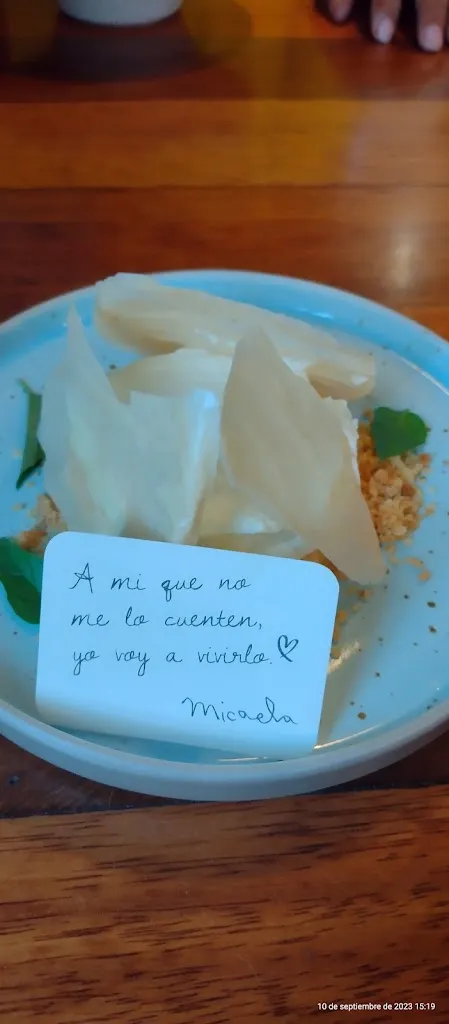 A mi que no
me lo cuenten,
yo voy a vivirlo.♡
Micaela
10 de septiembre de 2023 15:19